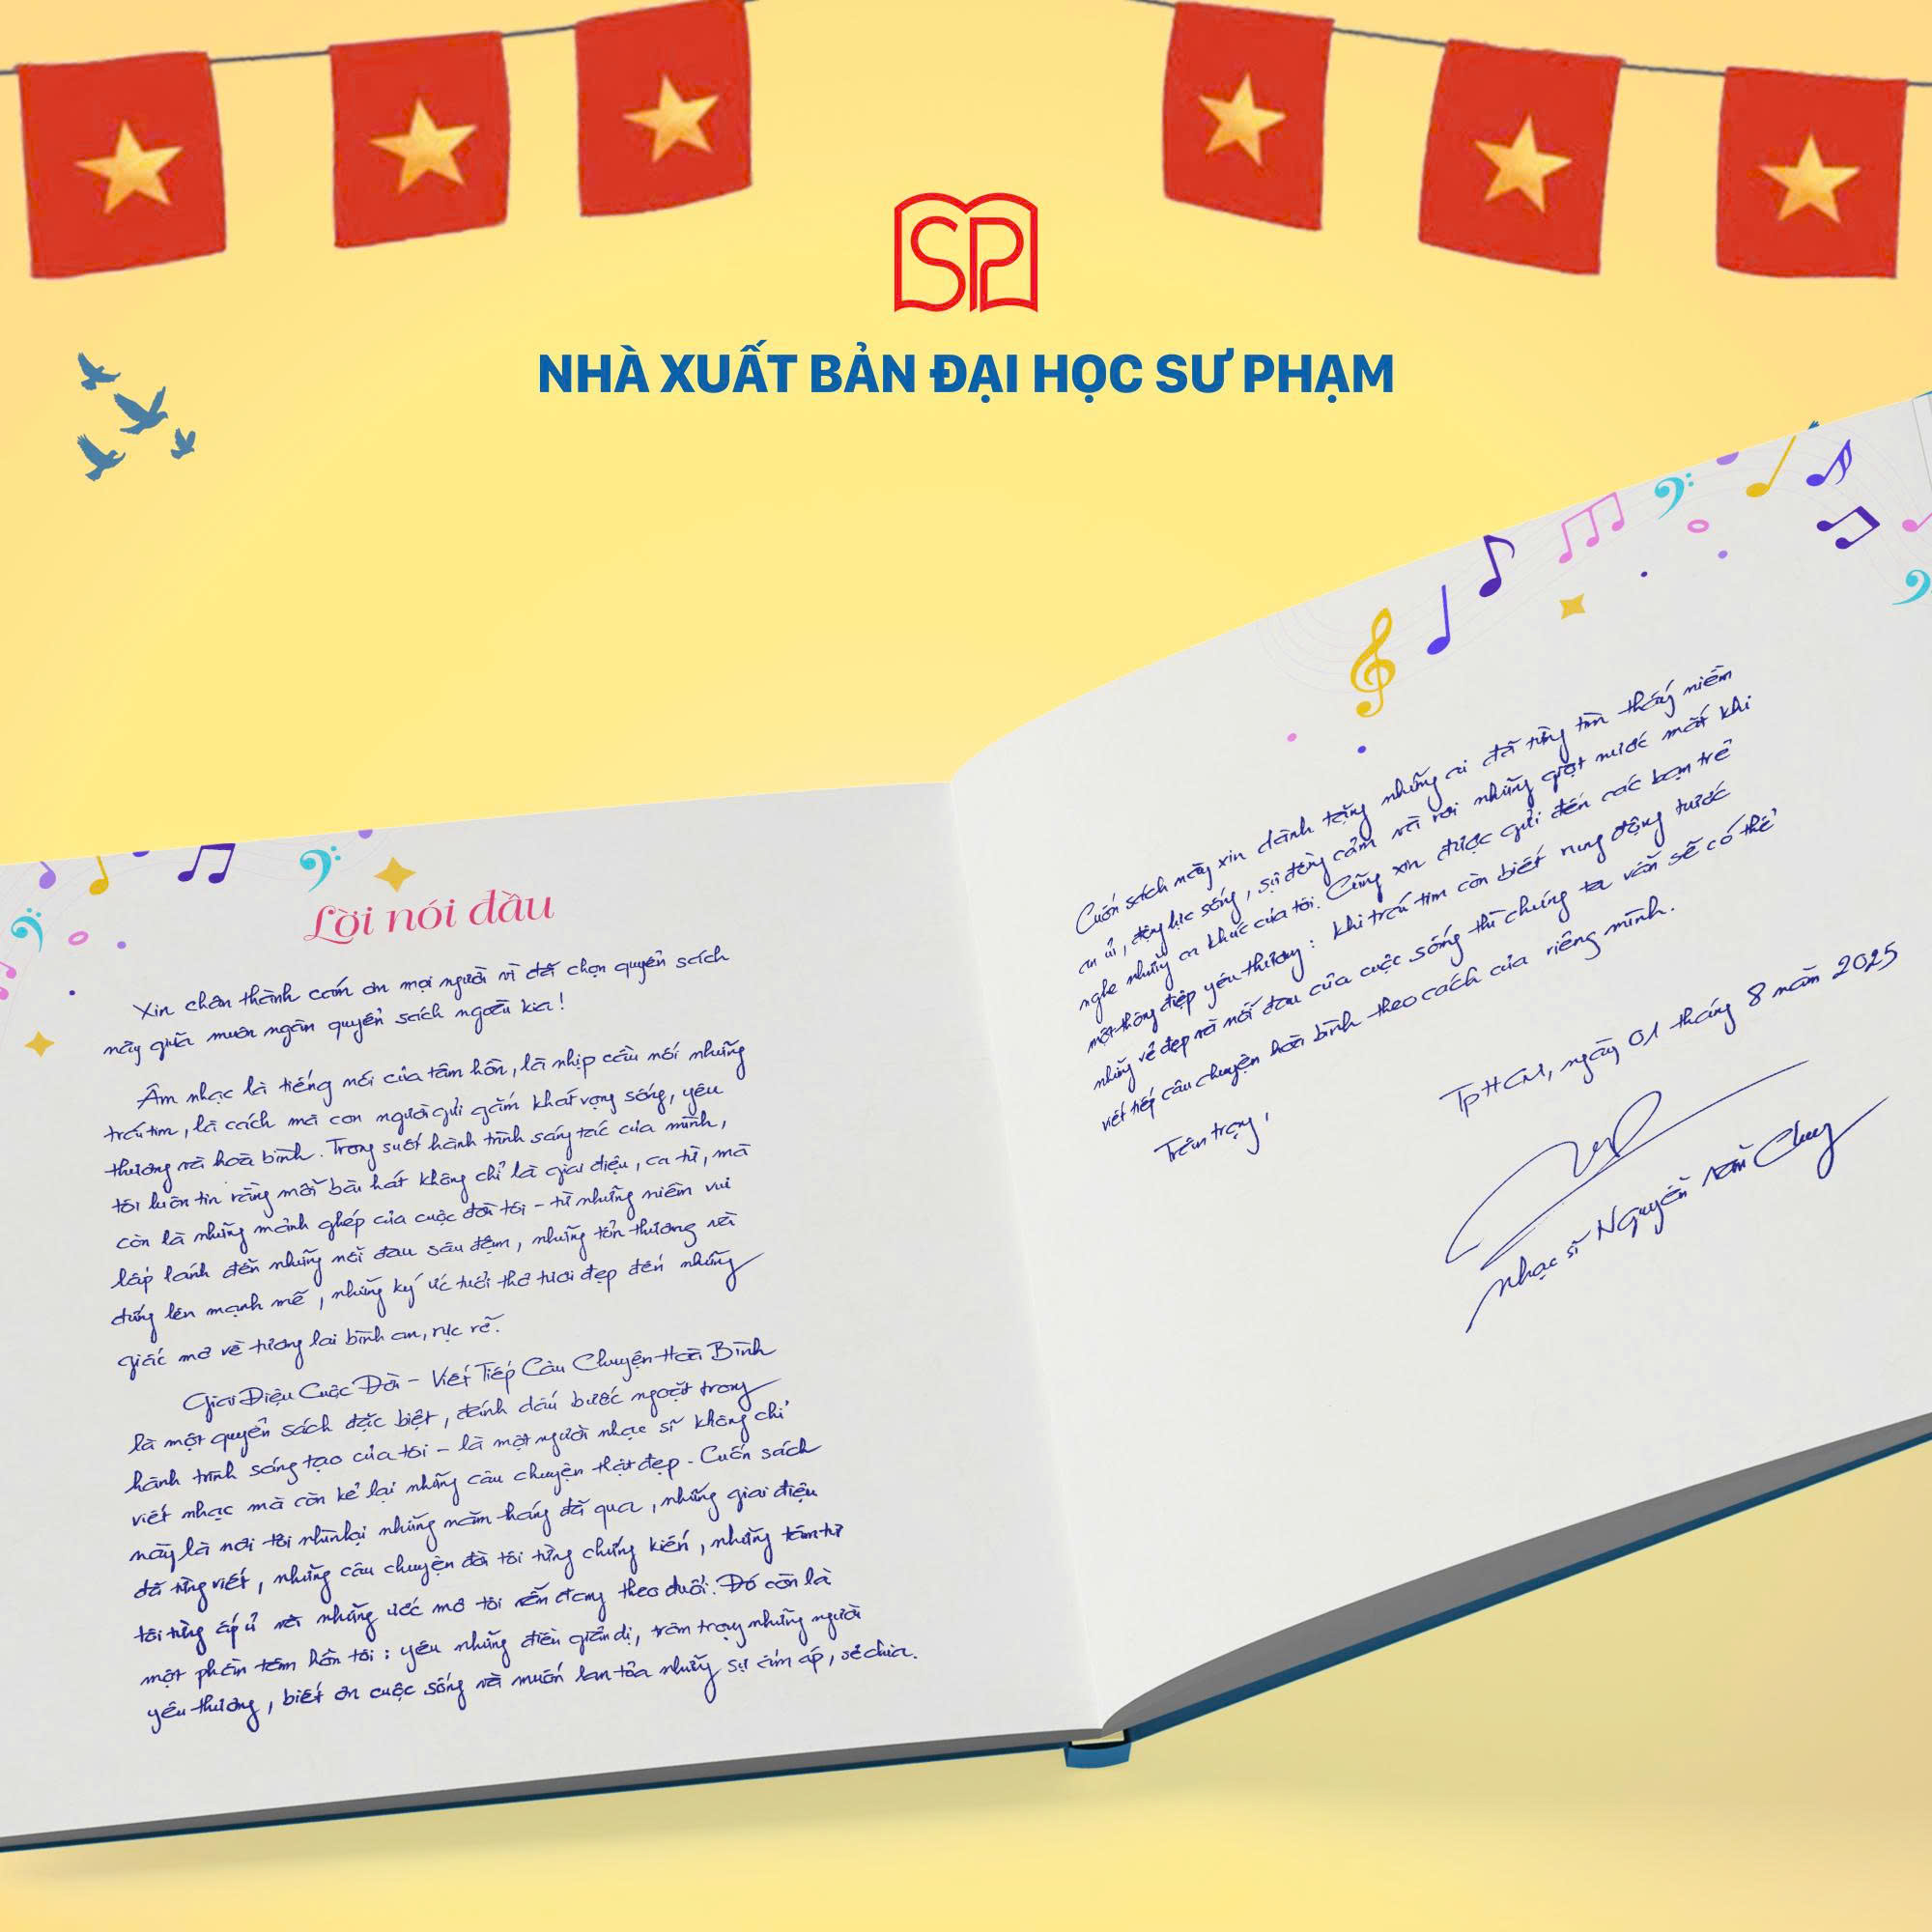 SP
NHÀ XUẤT BẢN ĐẠI HỌC SƯ PHẠM
Lời nói đầu
Xin chân thành cám ơn mọi người vì đã chọn quyển sách
này giữa muôn ngàn quyển sách ngoài kia!
Âm nhạc là tiếng nói của tâm hồn, là nhịp cầu nối những
trái tim, là cách mà con người gửi gắm khát vọng sống, yêu
thương và hoà bình. Trong suốt hành trình sáng tác của mình,
tôi luôn tin rằng mỗi bài hát không chỉ là giai điệu, ca từ, mà
còn là những mảnh ghép của cuộc đời tôi - từ những niềm vui
lấp lánh đến những nỗi đau sâu đậm, những tổn thương và
đứng lên mạnh mẽ, những ký ức tuổi thơ tươi đẹp đến những
giấc mơ về tương lai bình an, rực rỡ.
Giai Điệu Cuộc Đời - Viết Tiếp Câu Chuyện Hoà Bình
là một quyển sách đặc biệt, đánh dấu bước ngoặt trong
hành trình sáng tạo của tôi - là một người nhạc sĩ không chỉ
viết nhạc mà còn kể lại những câu chuyện thật đẹp. Cuốn sách
này là nơi tôi nhìn lại những năm tháng đã qua, những giai điệu
đã từng viết, những câu chuyện đời tôi từng chứng kiến, những tâm tư
tôi từng ấp ủ và những ước mơ tôi vẫn đang theo đuổi. Đó còn là
một phần tâm hồn tôi: yêu những điều giản dị, trân trọng những người
yêu thương, biết ơn cuộc sống và muốn lan tỏa những sự ấm áp, sẻ chia.
Cuốn sách này xin dành tặng những ai đã từng tìm thấy niềm
an ủi, động lực sống, sự đồng cảm và rơi những giọt nước mắt khi
nghe những ca khúc của tôi. Cũng xin được gửi đến các bạn trẻ
một thông điệp yêu thương: khi trái tim còn biết rung động trước
những vẻ đẹp và nỗi đau của cuộc sống thì chúng ta vẫn sẽ có thể
viết tiếp câu chuyện hoà bình theo cách của riêng mình.
Trân trọng,
TpHCM, ngày 01 tháng 8 năm 2025
Nhạc sĩ Nguyễn Văn Chung